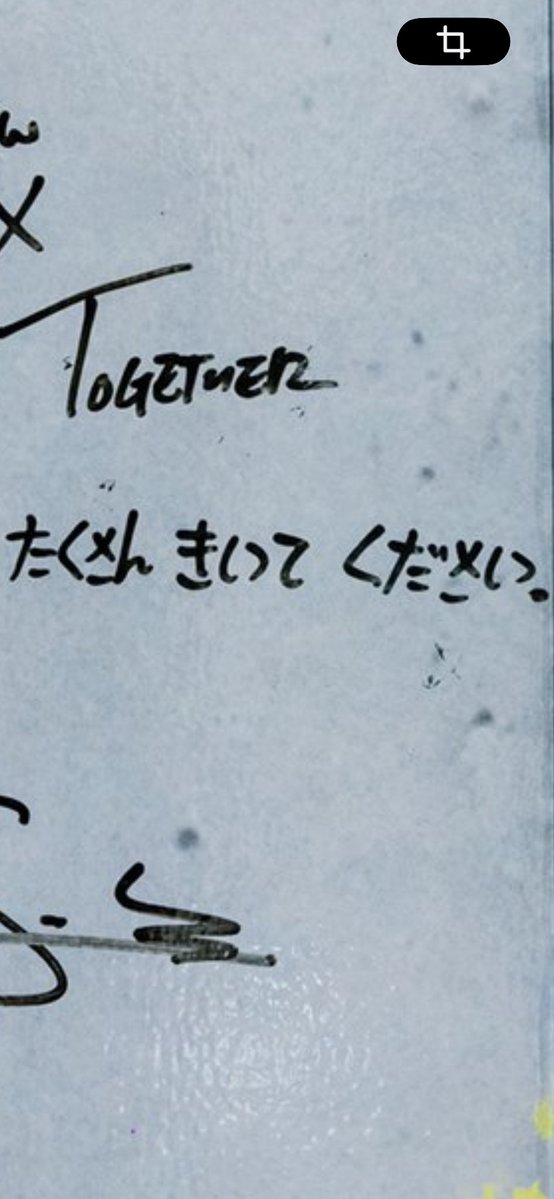 w
X
TOGETHER
たくさん きいて ください.